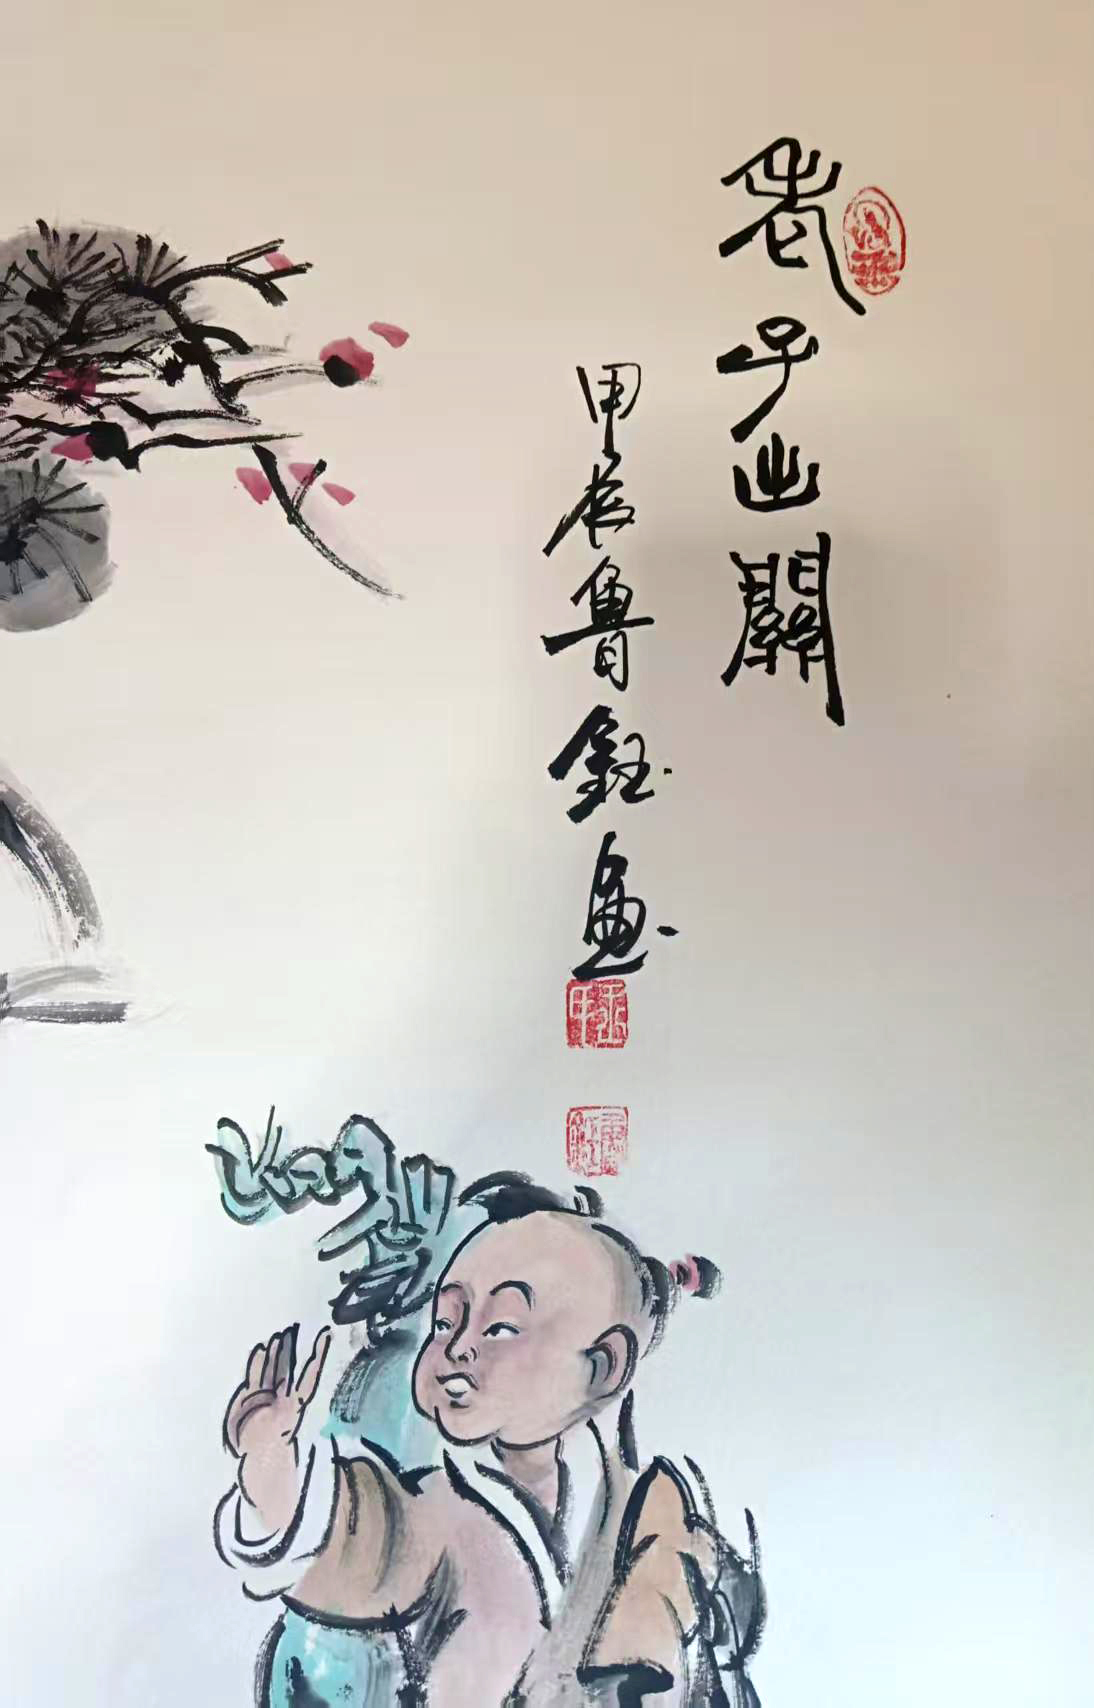 老子出關
甲辰魯鈺畫